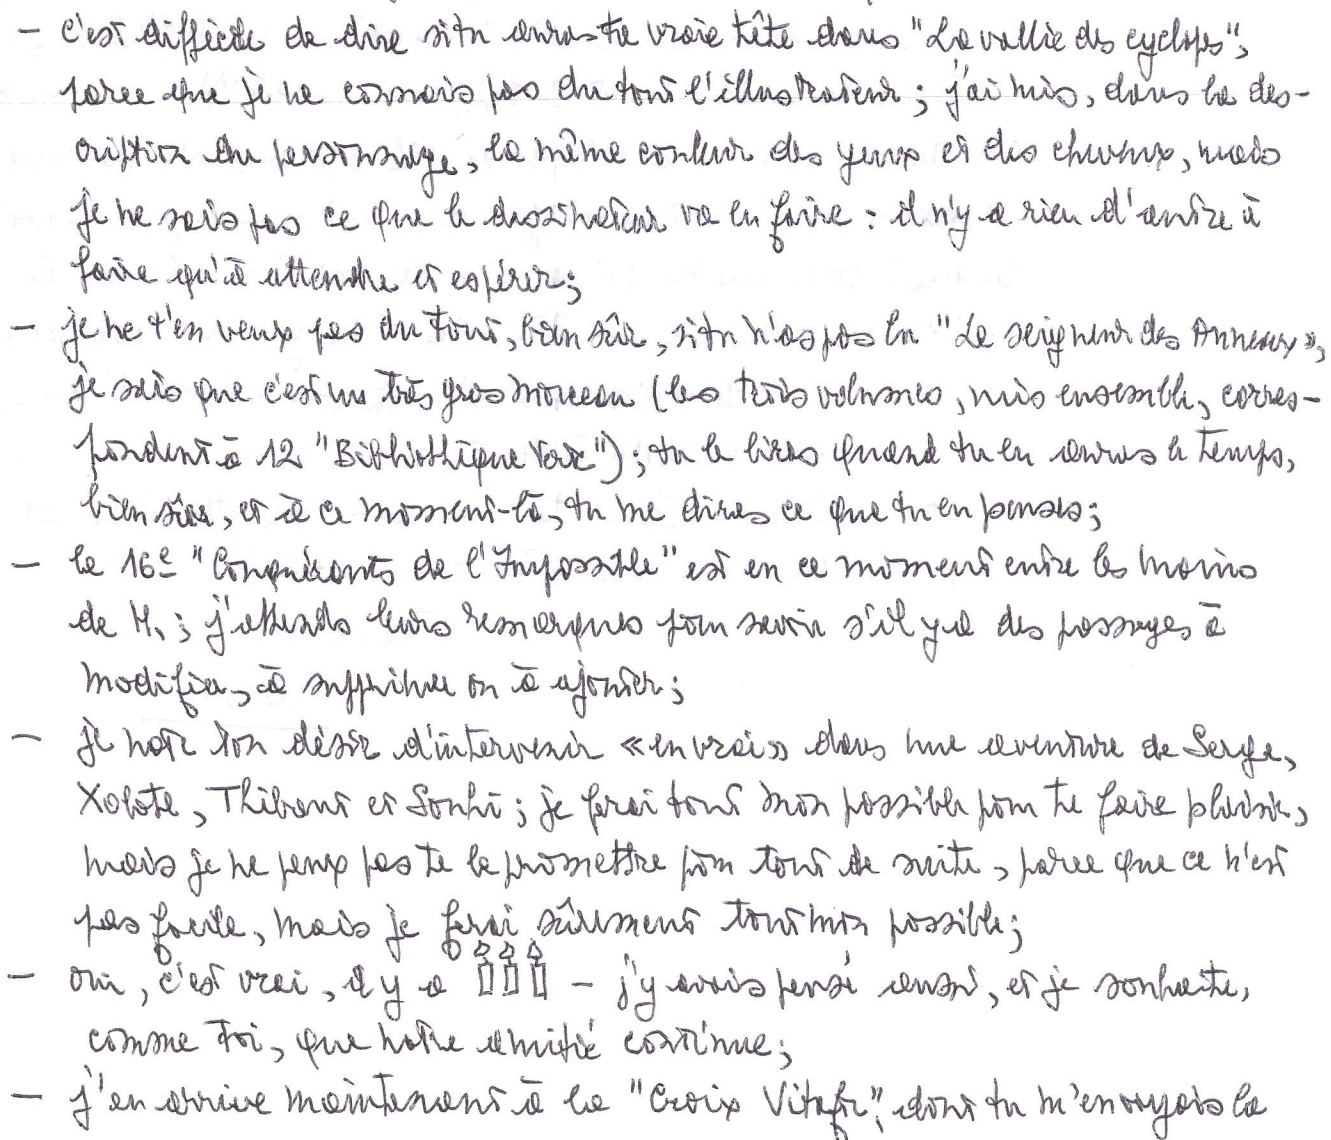 – c'est difficile de dire si tu auras ta vraie tête dans "La vallée des cyclopes",
parce que je ne connais pas du tout l'illustrateur ; j'ai mis, dans la des-
cription du personnage, la même couleur des yeux et des cheveux, mais
je ne sais pas ce que le dessinateur va en faire : il n'y a rien d'autre à
faire qu'à attendre et espérer ;
– je ne t'en veux pas du tout, bien sûr, si tu n'as pas lu "Le seigneur des Anneaux",
je sais que c'est un très gros morceau (les trois volumes, mis ensemble, corres-
pondent à 12 "Bibliothique Verte") ; tu le liras quand tu en auras le temps,
bien sûr, et à ce moment-là, tu me diras ce que tu en penses ;
– le 16e "Conquérants de l'Impossible" est en ce moment entre les mains
de H. ; j'attends leurs remarques pour savoir s'il y a des passages à
modifier, à supprimer ou à ajouter ;
– je note ton désir d'intervenir «en vrai» dans une aventure de Serge,
Xolotl, Thibaut et Souhi ; je ferai tout mon possible pour te faire plaisir,
mais je ne peux pas te le promettre pour tout de suite, parce que ce n'est
pas facile, mais je ferai sûrement tout mon possible ;
– oui, c'est vrai, il y a – j'y avais pensé aussi, et je souhaite,
comme toi, que notre amitié continue ;
– j'en arrive maintenant à la "Croix dont tu m'envoyais la